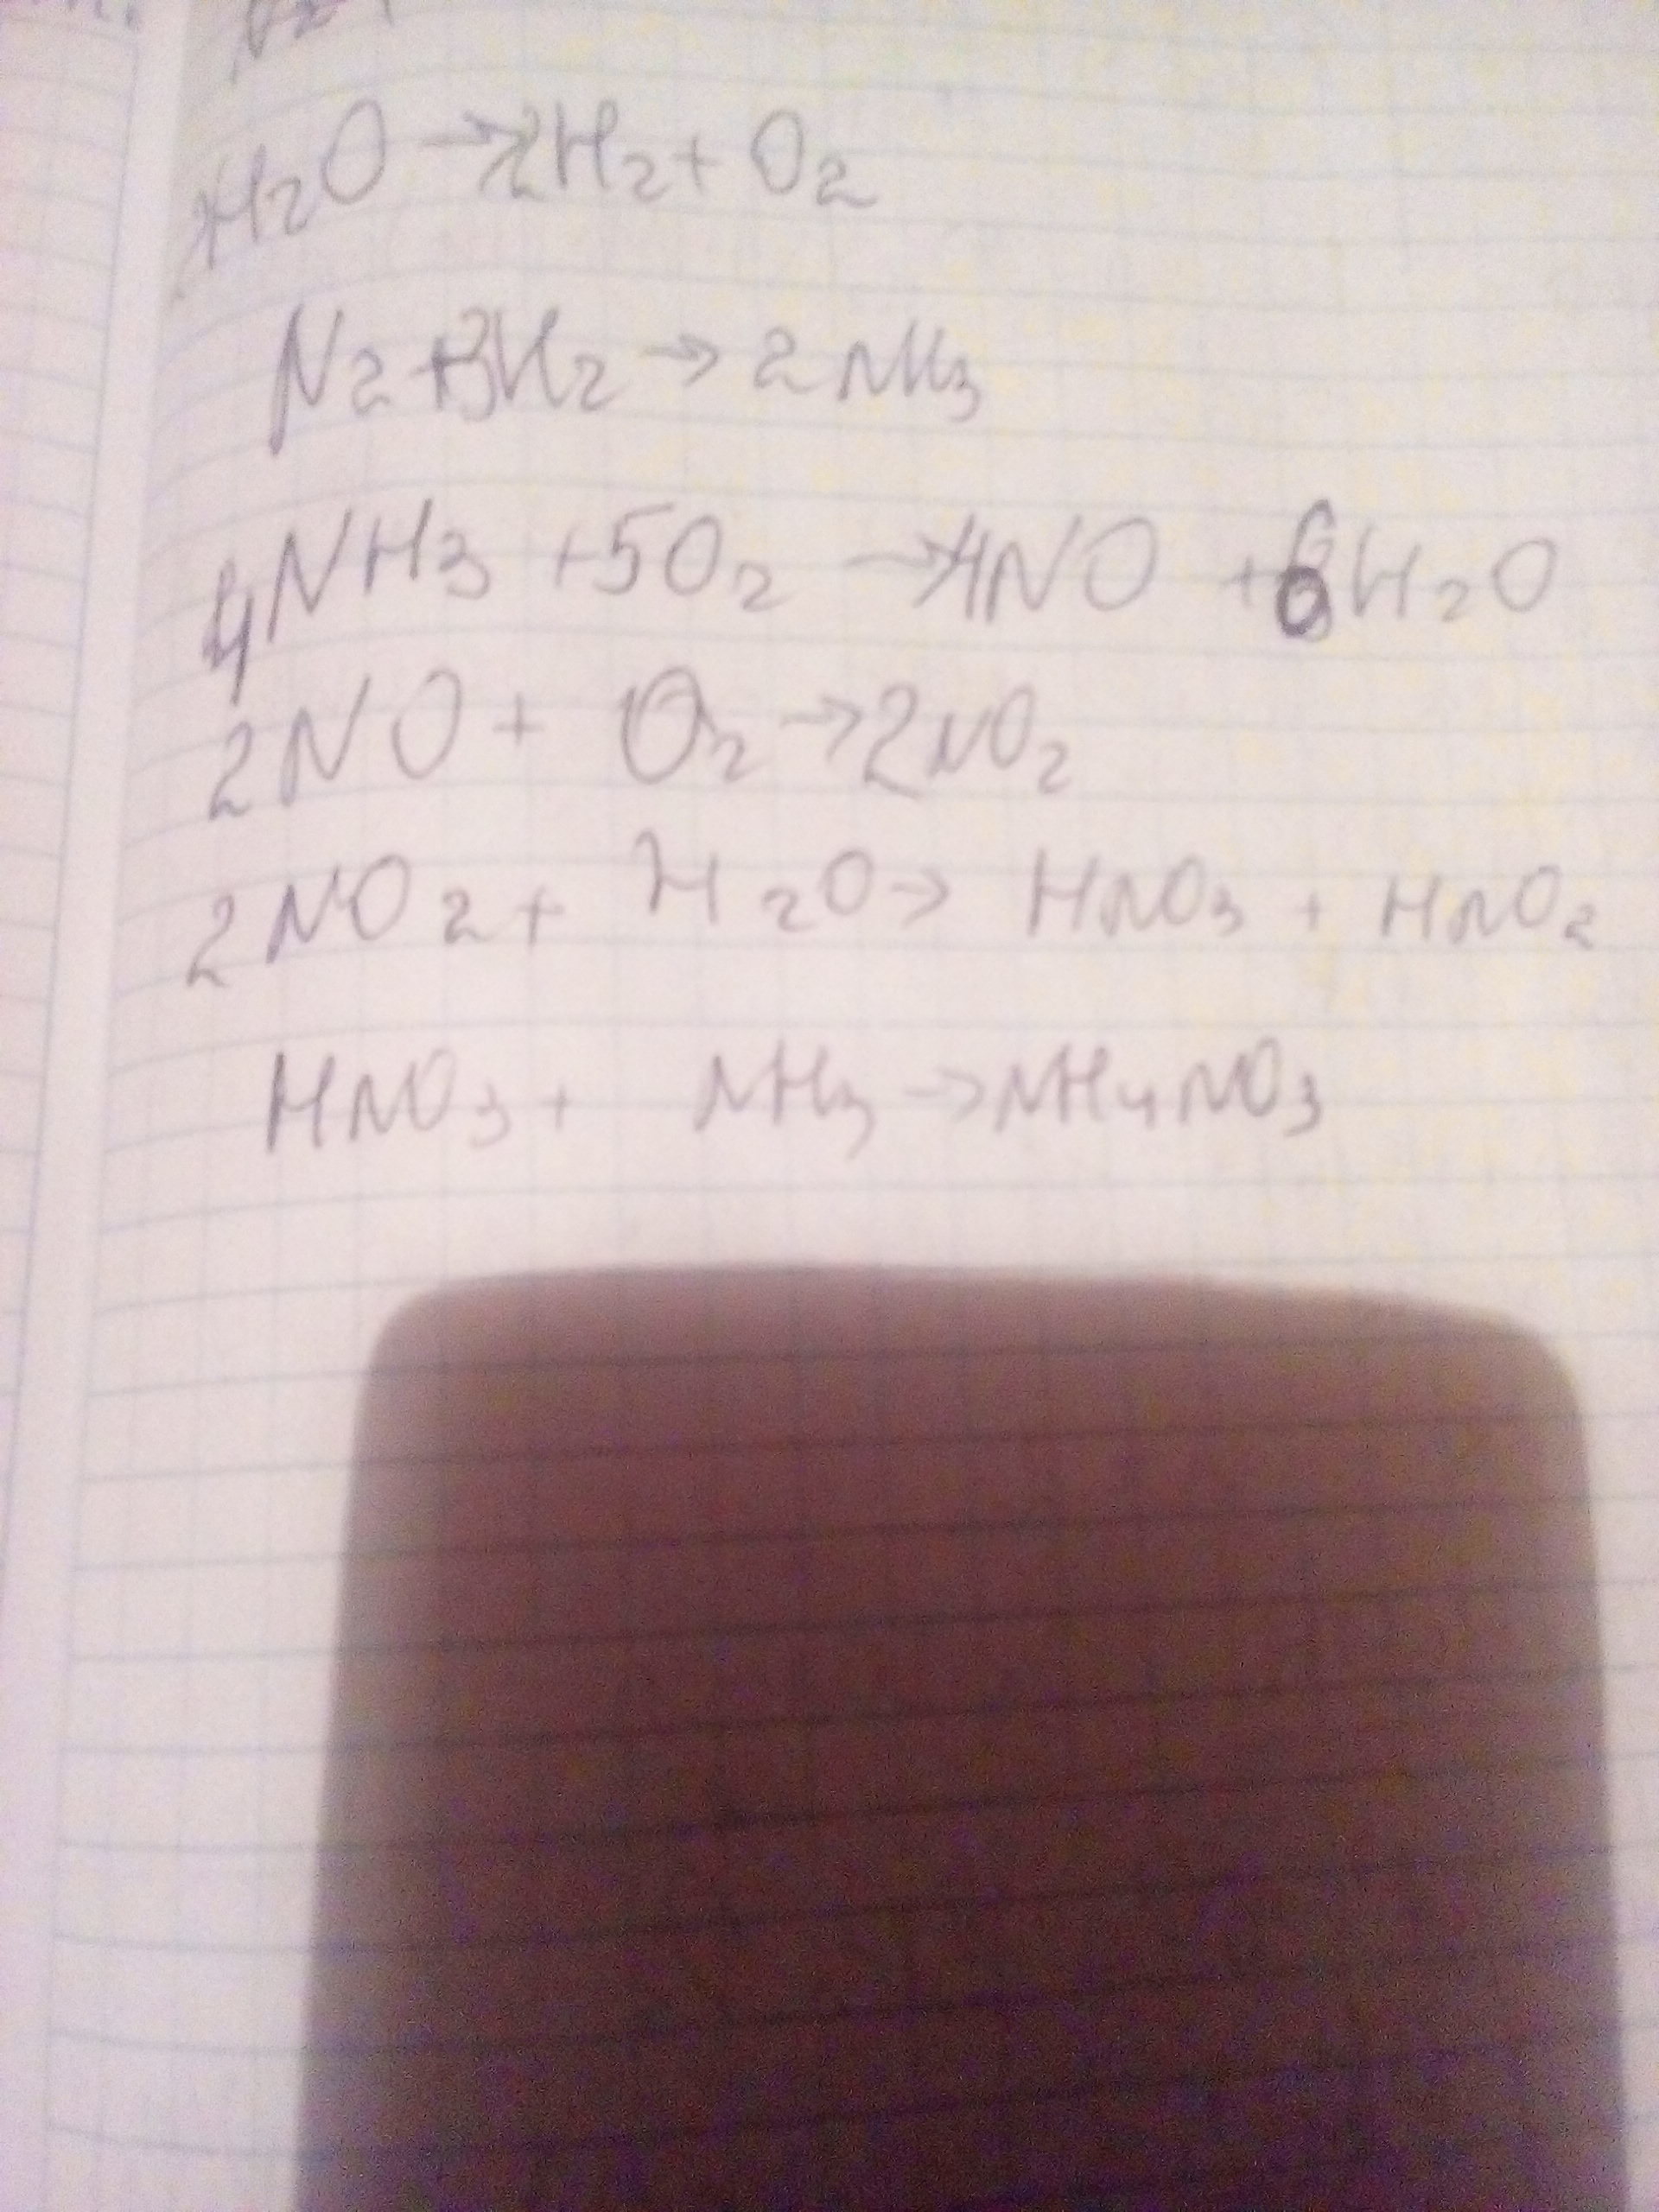 2H2O → 2H2 + O2
N2 + 3H2 → 2NH3
4NH3 + 5O2 → 4NO + 6H2O
2NO + O2 → 2NO2
2NO2 + H2O → HNO3 + HNO2
HNO3 + NH3 → NH4NO3